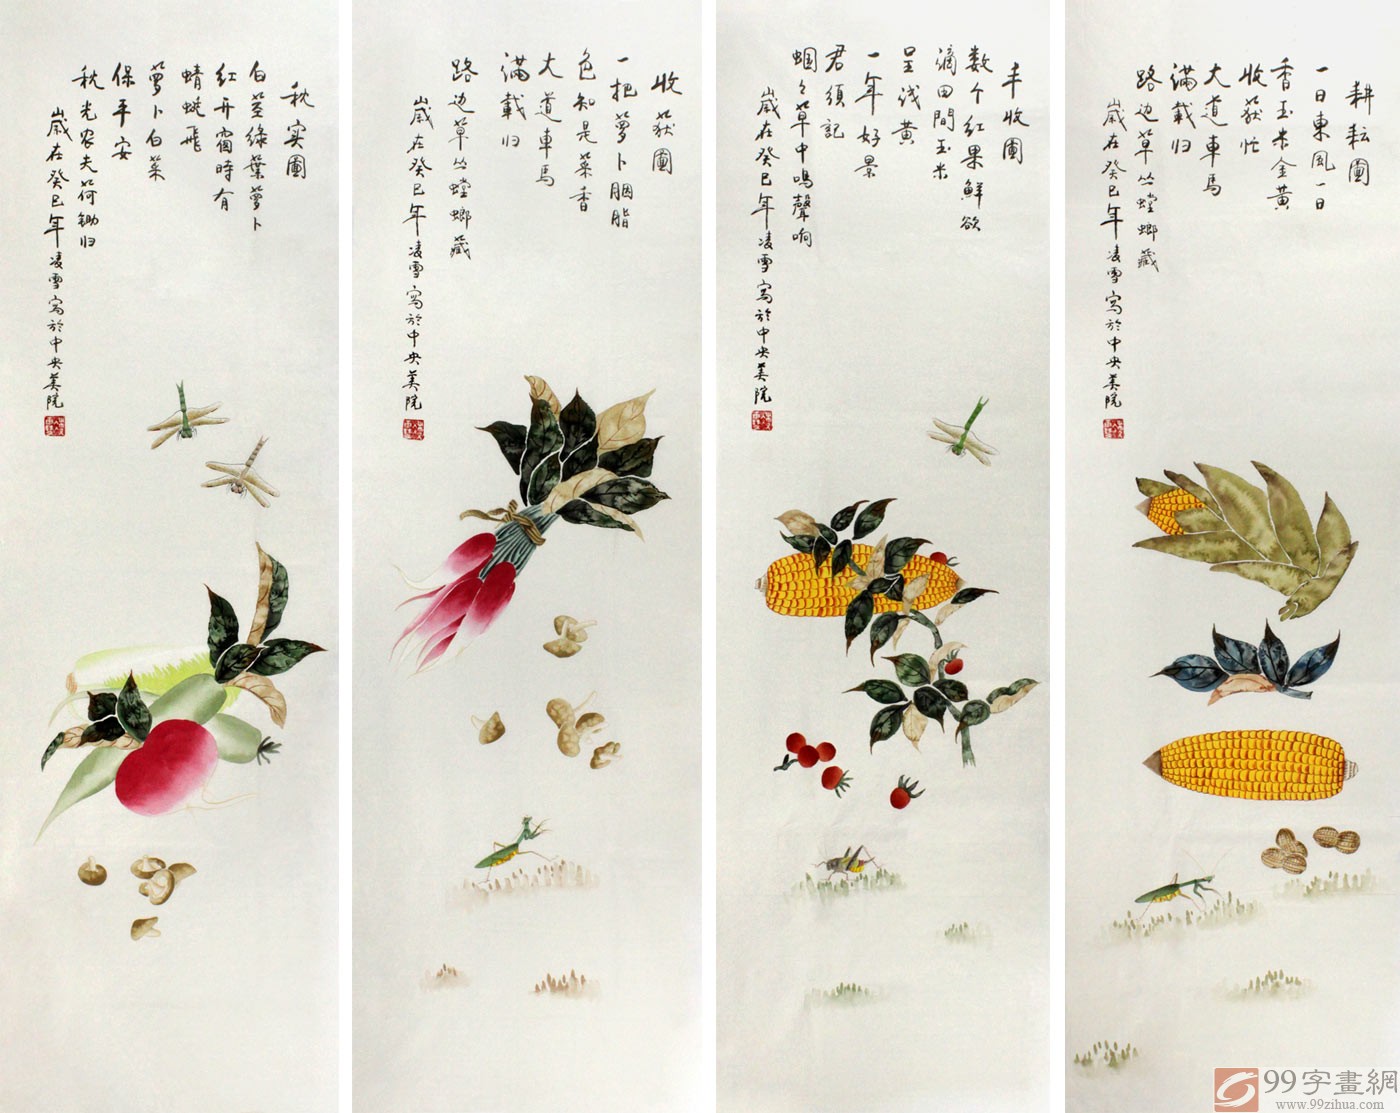 耕耘圖
一日東風一日
香玉米金黄
收获忙
大道車馬
满載归
路边草丛螳螂藏
歲在癸巳年凌雪寫於中央美院
丰收圖
数个红果鮮欲
滴田間玉米
呈浅黄
一年好景
君須記
蝈々草中鳴聲响
歲在癸巳年凌雪寫於中央美院
收获圖
一把萝卜胭脂
色知是菜香
大道車馬
满載归
路边草丛螳螂藏
歲在癸巳年凌雪寫於中央美院
秋实圖
白茎绿葉萝卜
红時有
蜻蜓飛
萝卜白菜
保平安
秋光农夫荷锄归
歲在癸巳年凌雪寫於中央美院
99字畫網
www.99zihua.com